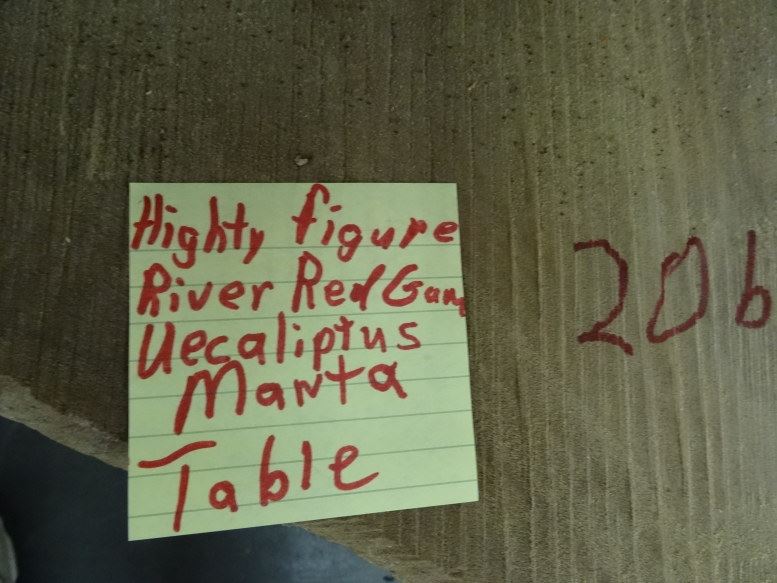 Highty figure
River Red Gum
Uecaliptus
Manta
Table
20b